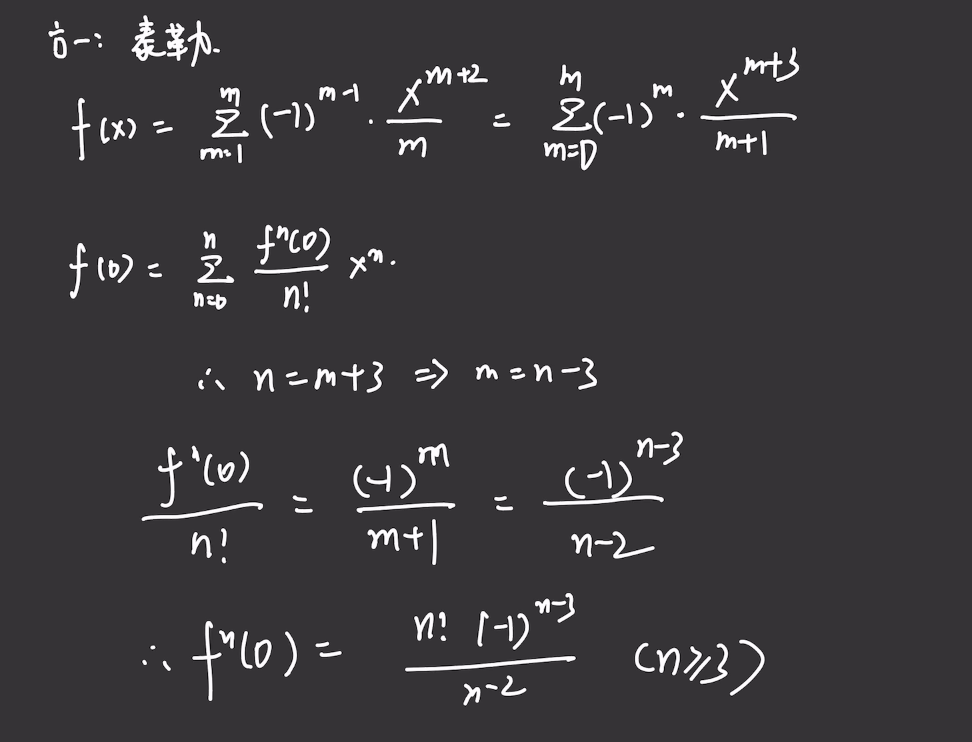 方一: 泰勒.
f(x) = \sum_{m=1}^{m} (-1)^{m-1} \cdot \frac{x^{m+2}}{m} = \sum_{m=0}^{m} (-1)^{m} \cdot \frac{x^{m+3}}{m+1}
f(0) = \sum_{n=0}^{n} \frac{f^{n}(0)}{n!} x^{n}.
∴ n = m+3 ⇒ m = n-3
\frac{f^{n}(0)}{n!} = \frac{(-1)^{m}}{m+1} = \frac{(-1)^{n-3}}{n-2}
∴ f^{n}(0) = \frac{n! (-1)^{n-3}}{n-2} (n⩾3)